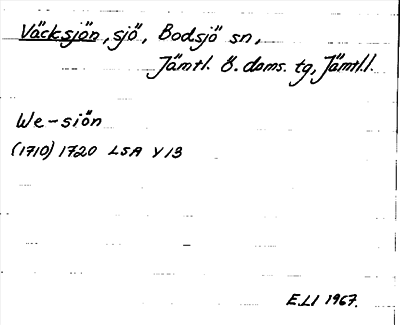 Väcksjön, sjö, Bodsjö sn,
Jämtl. ö. doms. tg, Jämtl.l.
We-siön
(1710) 1720 LSA Y13
E.LI 1967.